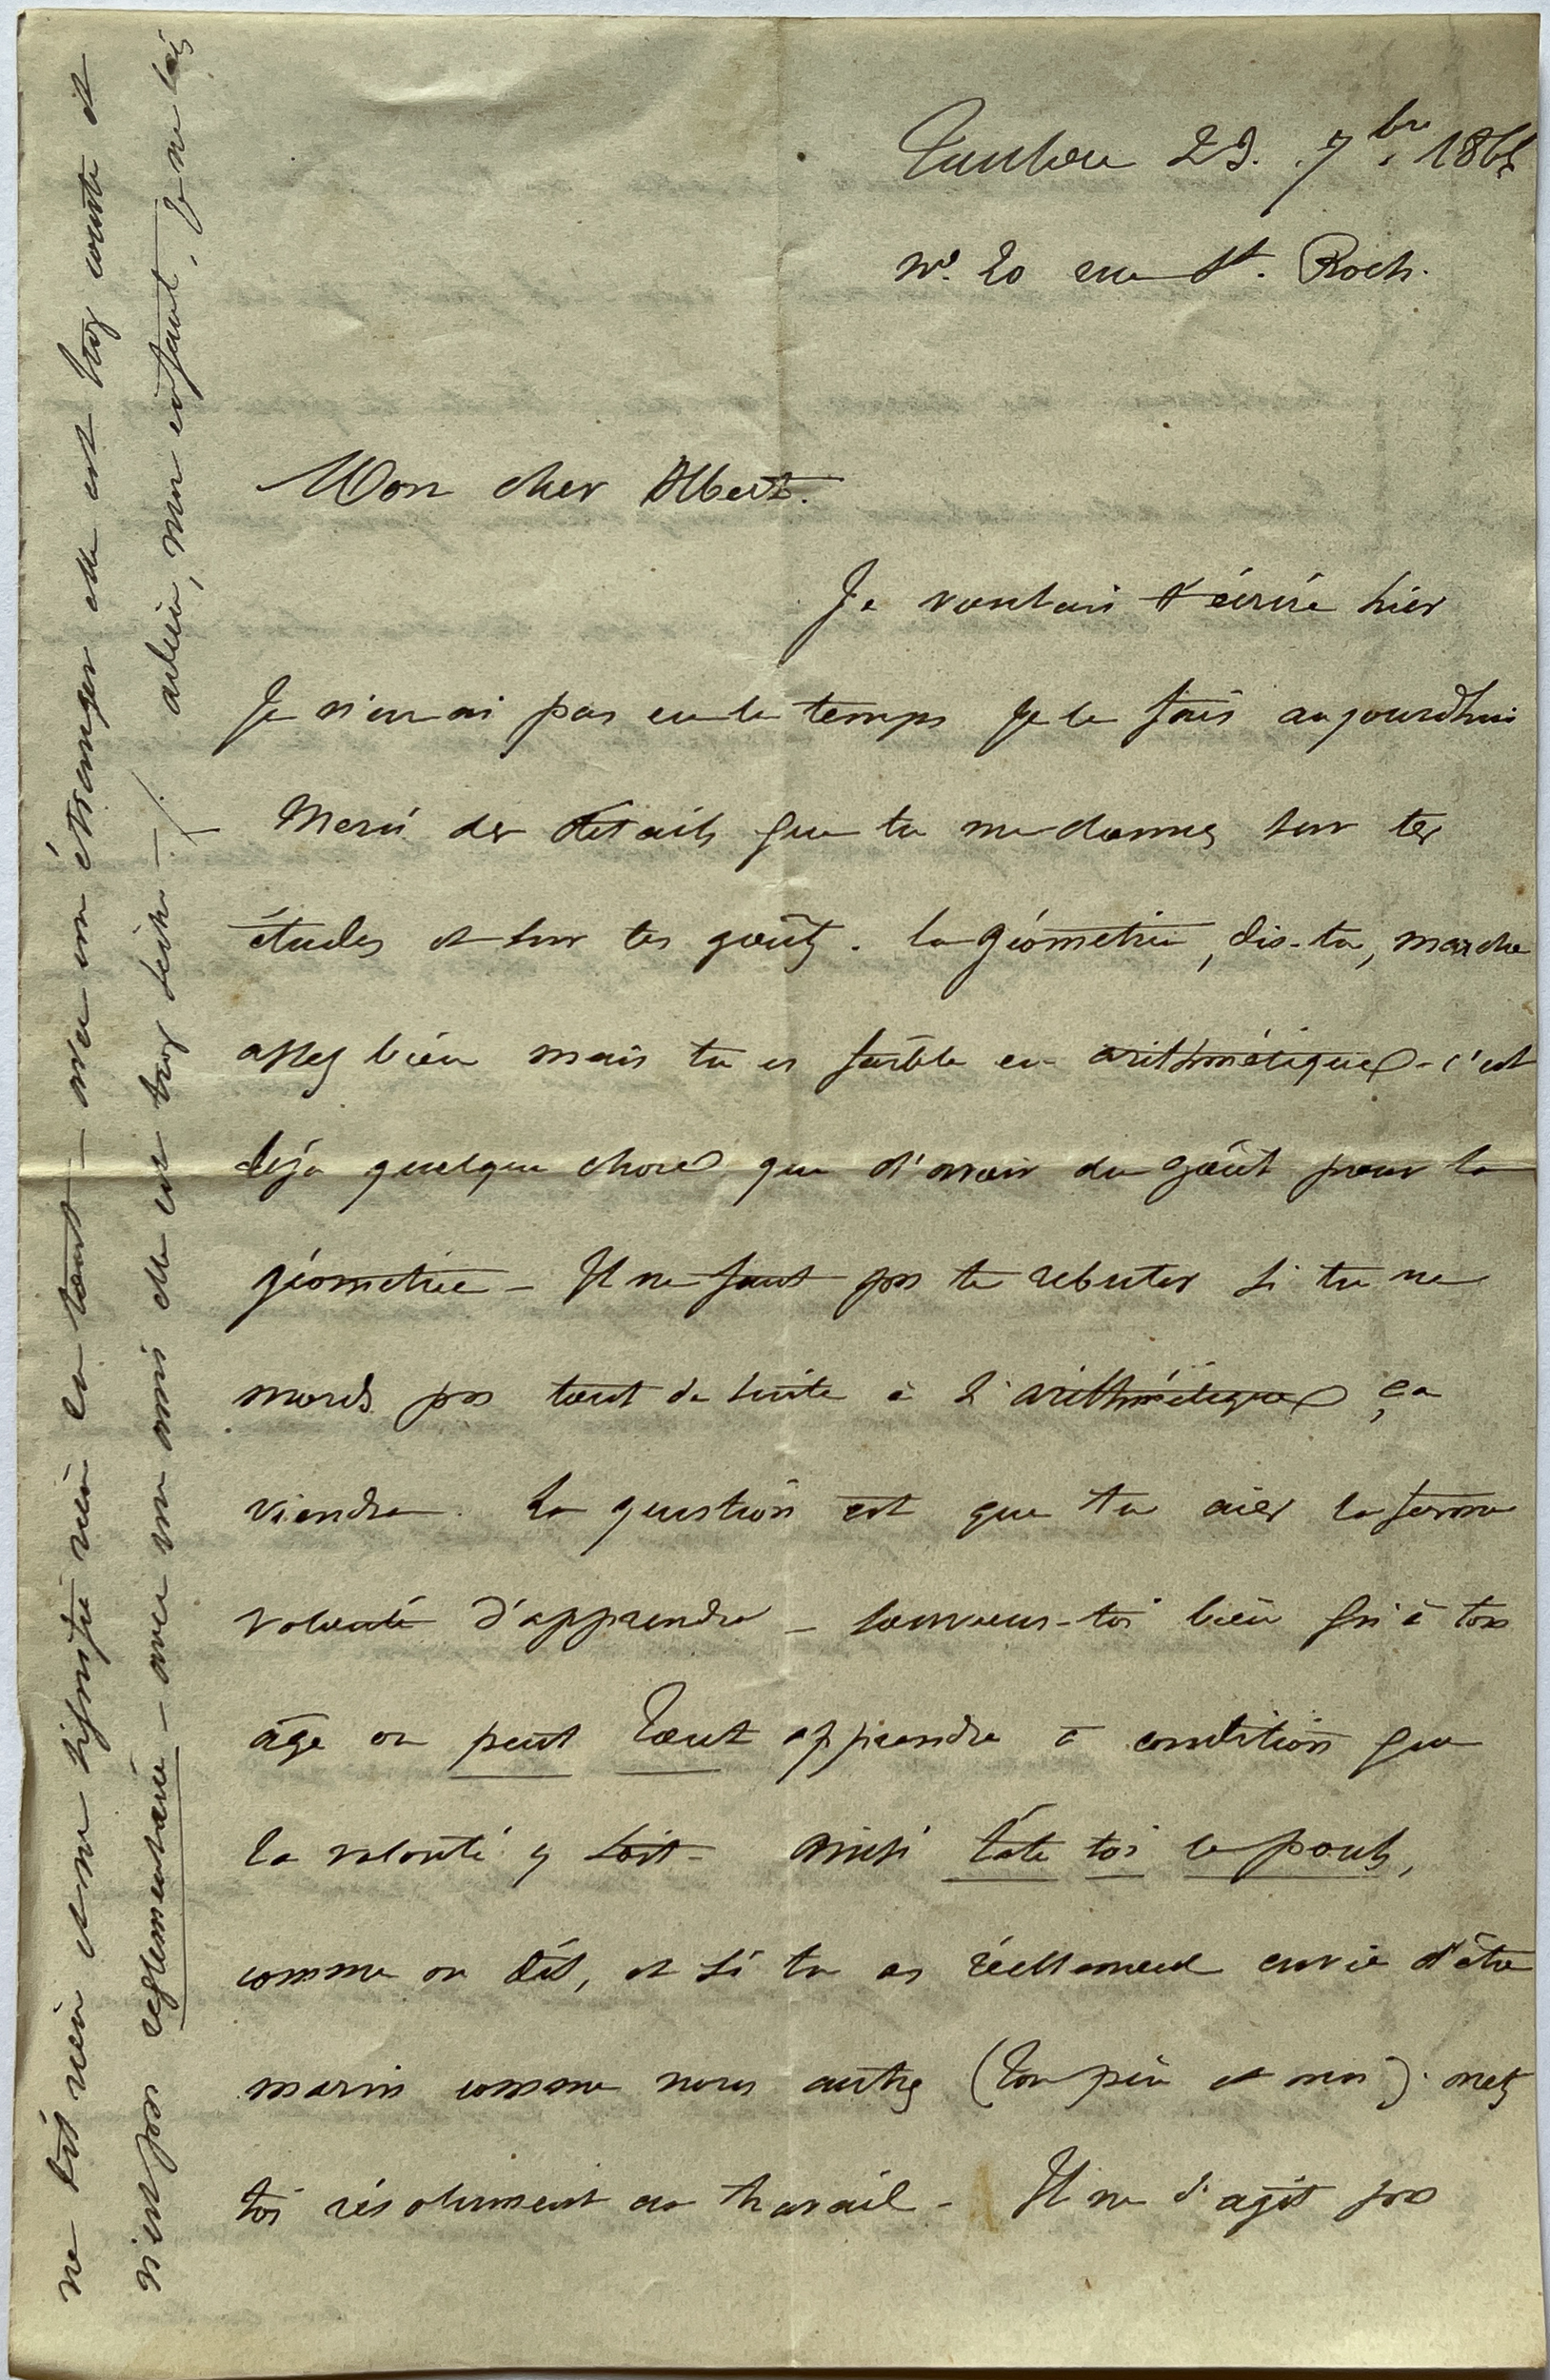 Toulon 29. 7bre. 186
No. 20 rue St. Roch.
Mon cher Albert.
Je voulais t'écrire hier
Je n'en ai pas eu le temps je le fais aujourdhui
Merci des détails que tu me donnes sur tes
études et sur tes goûts. la géometrie, dis-tu, marche
assez bien mais tu es faible en arithmétique - c'est
deja quelque chose que d'avoir du goût pour la
géometrie - Il ne faut pas te rebuter si tu ne
mords pas tout de suite à l'arithmétique ça
viendra. La question est que tu aies la ferme
volonté d'apprendre - souviens-toi bien qu'à ton
âge on peut tout apprendre à condition que
la volonté y soit - ainsi tâte toi le pouls,
comme on dit, et si tu as réellement envie d'être
marin comme nous autres (ton père et moi). mets
toi résolument au travail - Il ne s'agit pas
ne dit rien et ne signifie rien du tout - avec un étranger elle est trop courte et
n'est pas reglementaire - avec un ami elle est trop sèche - adieu, mon enfant, Je ne